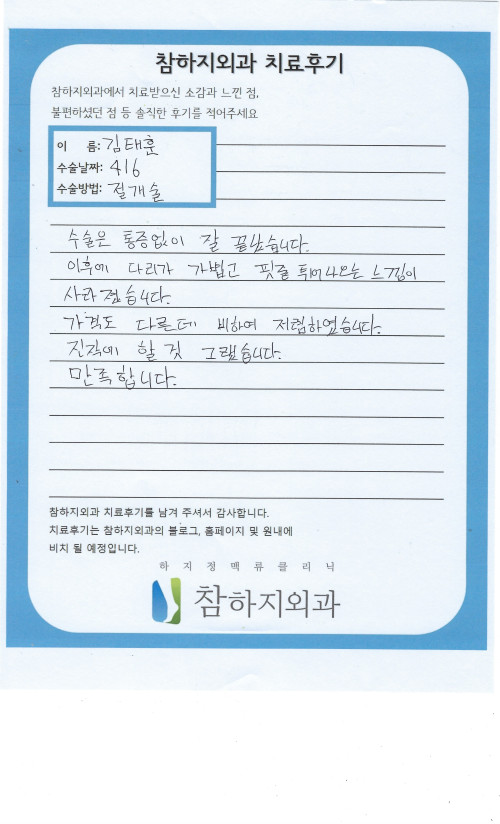 참하지외과 치료후기
참하지외과에서 치료받으신 소감과 느낀 점,
불편하셨던 점 등 솔직한 후기를 적어주세요
이 름: 김태훈
수술날짜: 416
수술방법: 절개술
수술은 통증없이 잘 끝났습니다.
이후에 다리가 가볍고 핏줄 튀어나오는 느낌이
사라졌습니다.
가격도 다른데 비하여 저렴하였습니다.
진작에 할 것 그랬습니다.
만족합니다.
참하지외과 치료후기를 남겨 주셔서 감사합니다.
치료후기는 참하지외과의 블로그, 홈페이지 및 원내에
비치 될 예정입니다.
하지정맥류클리닉
참하지외과